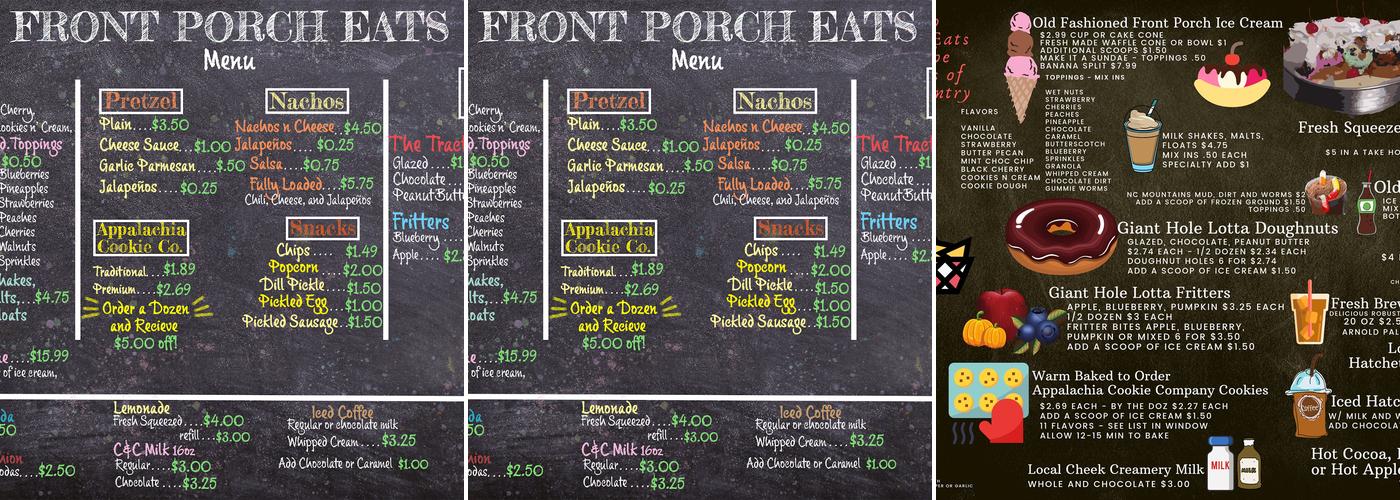 FRONT PORCH EATS
Menu
Cherry,
ookies n' Cream,
d.Toppings
$0.50
Blueberries
Pineapples
Strawberries
Peaches
Cherries
Walnuts
Sprinkles
hakes,
lts,...$4.75
oats
e...$15.99
of ice cream,
Pretzel
Plain....$3.50
Cheese Sauce....$1.00
Garlic Parmesan....$.50
Jalapeños....$0.25
Appalachia
Cookie Co.
Traditional...$1.89
Premium....$2.69
Order a Dozen
and Recieve
$5.00 off!
Nachos
Nachos n Cheese..$4.50
Jalapeños.....$0.25
Salsa....$0.75
Fully Loaded....$5.75
Chili, Cheese, and Jalapeños
Snacks
Chips .... $1.49
Popcorn ....$2.00
Dill Pickle....$1.50
Pickled Egg....$1.00
Pickled Sausage..$1.50
The Tract
Glazed....$1
Chocolate....
PeanutButt
Fritters
Blueberry....
Apple....$2.
da
50
nion
odas....$2.50
Lemonade
Fresh Squeezed....$4.00
refill...$3.00
C&C Milk 16oz
Regular....$3.00
Chocolate ....$3.25
Iced Coffee
Regular or chocolate milk
Whipped Cream....$3.25
Add Chocolate or Caramel $1.00
FRONT PORCH EATS
Menu
Cherry,
ookies n' Cream,
d.Toppings
$0.50
Blueberries
Pineapples
Strawberries
Peaches
Cherries
Walnuts
Sprinkles
hakes,
lts,...$4.75
oats
e...$15.99
of ice cream,
Pretzel
Plain....$3.50
Cheese Sauce....$1.00
Garlic Parmesan....$.50
Jalapeños....$0.25
Appalachia
Cookie Co.
Traditional...$1.89
Premium....$2.69
Order a Dozen
and Recieve
$5.00 off!
Nachos
Nachos n Cheese..$4.50
Jalapeños.....$0.25
Salsa....$0.75
Fully Loaded....$5.75
Chili, Cheese, and Jalapeños
Snacks
Chips .... $1.49
Popcorn ....$2.00
Dill Pickle....$1.50
Pickled Egg....$1.00
Pickled Sausage..$1.50
The Tract
Glazed....$1
Chocolate....
PeanutButt
Fritters
Blueberry....
Apple....$2.
da
50
nion
odas....$2.50
Lemonade
Fresh Squeezed....$4.00
refill...$3.00
C&C Milk 16oz
Regular....$3.00
Chocolate ....$3.25
Iced Coffee
Regular or chocolate milk
Whipped Cream....$3.25
Add Chocolate or Caramel $1.00
Eats
e
of
ntry
Old Fashioned Front Porch Ice Cream
$2.99 CUP OR CAKE CONE
FRESH MADE WAFFLE CONE OR BOWL $1
ADDITIONAL SCOOPS $1.50
MAKE IT A SUNDAE - TOPPINGS .50
BANANA SPLIT $7.99
TOPPINGS - MIX INS
FLAVORS
VANILLA
CHOCOLATE
STRAWBERRY
BUTTER PECAN
MINT CHOC CHIP
BLACK CHERRY
COOKIES N CREAM
COOKIE DOUGH
WET NUTS
STRAWBERRY
CHERRIES
PEACHES
PINEAPPLE
CHOCOLATE
CARAMEL
BUTTERSCOTCH
BLUEBERRY
SPRINKLES
GRANOLA
WHIPPED CREAM
CHOCOLATE DIRT
GUMMIE WORMS
MILK SHAKES, MALTS,
FLOATS $4.75
MIX INS .50 EACH
SPECIALTY ADD $1
NC MOUNTAINS MUD, DIRT AND WORMS $2
ADD A SCOOP OF FROZEN GROUND $1.50
TOPPINGS .50
Giant Hole Lotta Doughnuts
GLAZED, CHOCOLATE, PEANUT BUTTER
$2.74 EACH - 1/2 DOZEN $2.34 EACH
DOUGHNUT HOLES 6 FOR $2.74
ADD A SCOOP OF ICE CREAM $1.50
Giant Hole Lotta Fritters
APPLE, BLUEBERRY, PUMPKIN $3.25 EACH
1/2 DOZEN $3 EACH
FRITTER BITES APPLE, BLUEBERRY,
PUMPKIN OR MIXED 6 FOR $3.50
ADD A SCOOP OF ICE CREAM $1.50
Warm Baked to Order
Appalachia Cookie Company Cookies
$2.69 EACH - BY THE DOZ $2.27 EACH
ADD A SCOOP OF ICE CREAM $1.50
11 FLAVORS - SEE LIST IN WINDOW
ALLOW 12-15 MIN TO BAKE
Local Cheek Creamery Milk
WHOLE AND CHOCOLATE $3.00
MILK
Fresh Squeez
$5 IN A TAKE HO
Old
ICE
MIX
BOT
$4
Fresh Brew
DELICIOUS ROBUST
20 OZ $2.5
ARNOLD PAL
Lo
Hatchet
Coffee
Iced Hatc
W/ MILK AND
ADD CHOCOLA
Hot Cocoa,
or Hot Apple
PER OR GARLIC